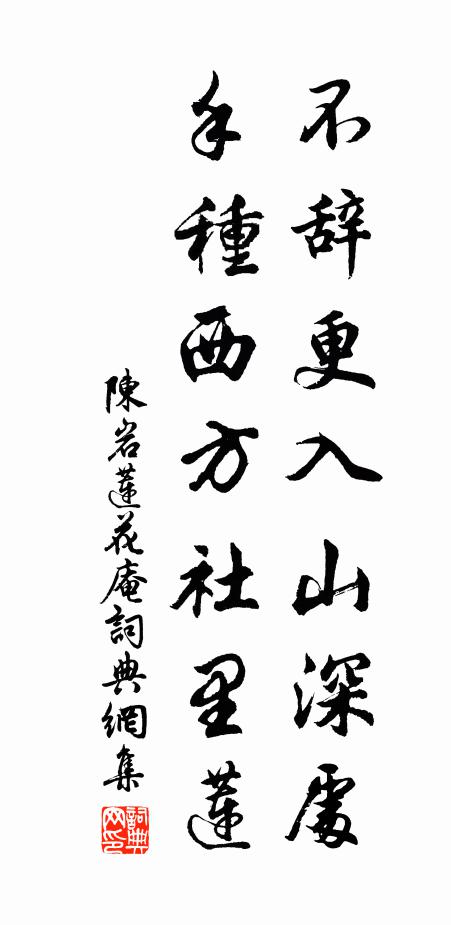 不辞更入山深處
手種西方社里蓮
陳岩蓮花庵詞典網集
詞典网印